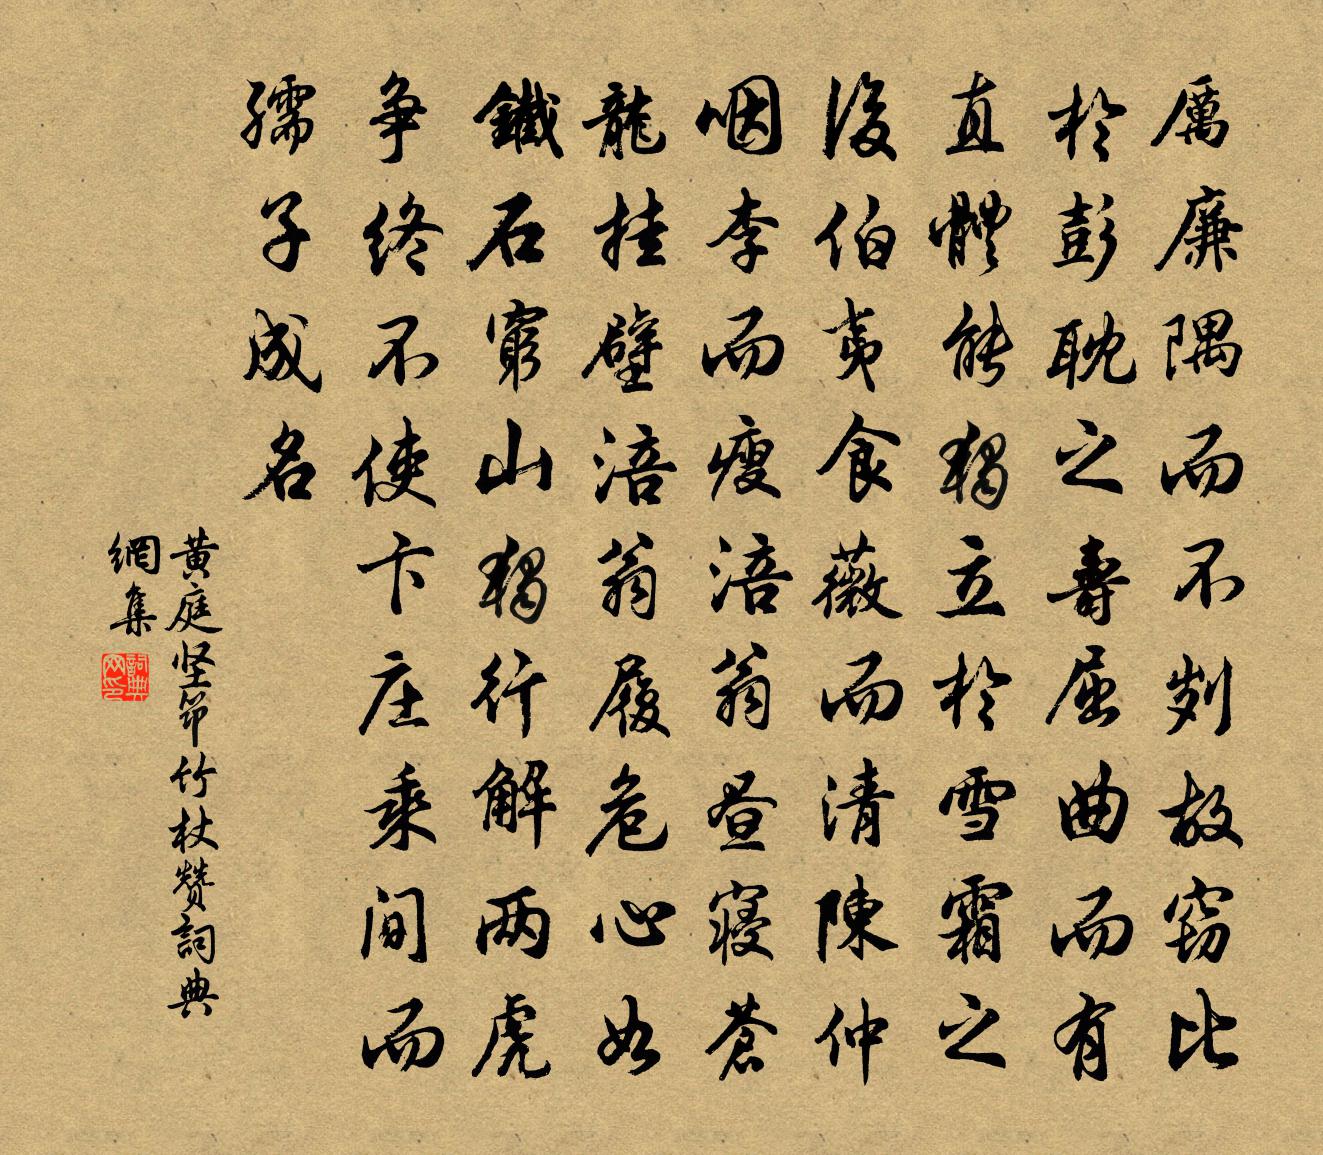 厲廉隅而不刿故窈比
於彭耽之壽屈曲而有
直體能獨立於雪霜之
後伯夷食薇而清陳仲
咽李而瘦涪翁昼寝蒼
龍挂壁涪翁履危心如
鐵石窮山獨行解两虎
争终不使卞庄乘间而
孺子成名
黄庭坚笻竹杖赞詞典
網集
詞典网印